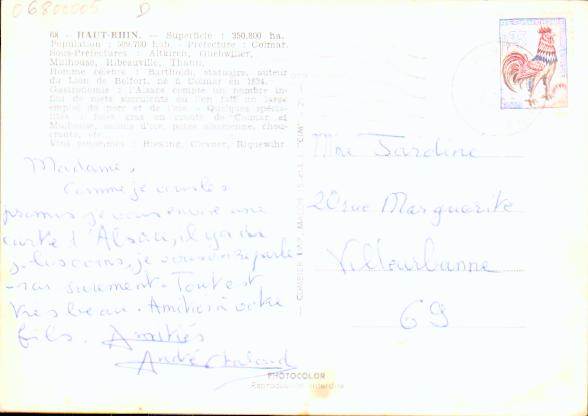 06800005 D
68 - HAUT-RHIN. — Superficie : 350.800 ha.
Population : 509.700 hab. - Préfecture : Colmar.
Sous-Préfectures : Altkirch, Guebwiller,
Mulhouse, Ribeauvillé, Thann.
Homme célèbre : Bartholdi, statuaire, auteur
du Lion de Belfort, né à Colmar en 1834.
Gastronomie : l'Alsace compte un nombre in-
fini de mets succulents où l'on fait un large
emploi du porc et de l'oie. - Quelques spécia-
lités : foies gras en croûte de Colmar et
Mulhouse, pâtes alsacienne, chou-
croute, etc...
Vins renommés : Riquewihr
Madame,
Comme je vous l'ai
promis je vous envoie une
carte d'Alsace, il y a de
jolis coins, je vous en reparle
-rai surement. Tout est
très beau. Amitiés à votre
fils. Amitiés
André
Mme Jardine
20 rue Marguerite
Villeurbanne
69
COMBIER IMP. MACON
PHOTOCOLOR
Reproduction interdite